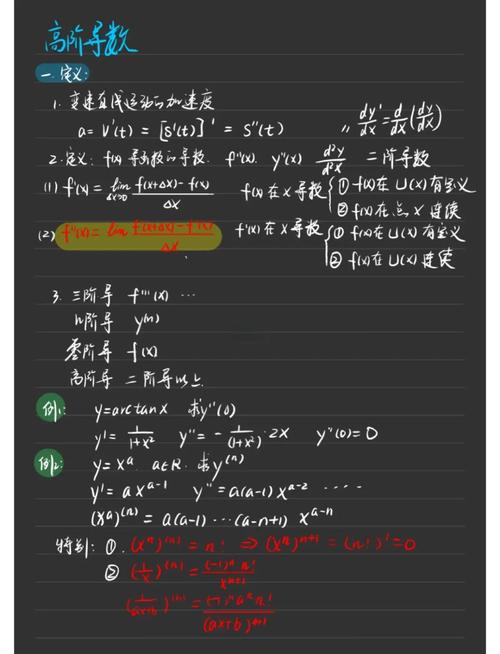 高阶导数
一.定义:
1. 变速直线运动的加速度
a = v'(t) = [s'(t)]' = s''(t) 〃 dy'/dx = d/dx(dy/dx)
2.定义: f(x) 导函数的导数. f''(x). y''(x) d²y/dx² 二阶导数
(1) f'(x) = lim Δx→0 f(x+Δx)-f(x)/Δx f(x)在X导数 { ① f(x)在U(x)有定义
② f(x)在点X连续
(2) f''(x) = lim f'(x+Δx)-f'(x)/Δx f'(x)在X导数 { ① f(x)在U(x)有定义
② f(x)在U(x)连续
3. 三阶导 f'''(x) ...
n阶导 y(n)
零阶导 f(x)
高阶导 二阶导以上
例1: y=arctanx 求y''(0)
y' = 1/1+x² y'' = - 1/(1+x²)² · 2X y''(0)=0
例2: y = xᵃ. a∈R. 求y⁽ⁿ⁾
y' = a xᵃ⁻¹ y'' = a(a-1) xᵃ⁻² ....
(xᵃ)⁽ⁿ⁾ = a(a-1)...(a-n+1) xᵃ⁻ⁿ
特别: ①. (xⁿ)⁽ⁿ⁾ = n! ⇒ (xⁿ)ⁿ⁺¹ = (n!)' = 0
② (1/x)⁽ⁿ⁾ = (-1)ⁿ n!/xⁿ⁺¹
(1/ax+b)⁽ⁿ⁾ = (-1)ⁿ aⁿ n!/(ax+b)ⁿ⁺¹